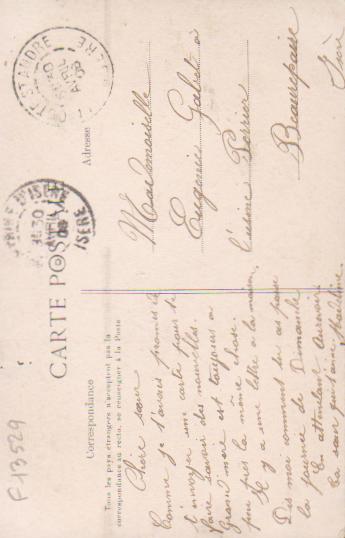 CARTE POSTALE
Correspondance
Tous les pays étrangers n'acceptent pas la
correspondance au recto, se renseigner à la Poste
Adresse
Chère sœur
Comme je t'avais promis de
t'envoyer une carte pour te
faire savoir des nouvelles.
Grand'mère est toujours a
peu près la même chose.
Il y a une lettre a la maison,
Dis moi comment tu as passé
la journée de Dimanche
En attendant aurevoir
Ta sœur qui t'aime
Mademoiselle
Eugénie Gabet à
l'usine Perrier
Beaurepaire
Isère
ST ANDRE
ISERE
F13529